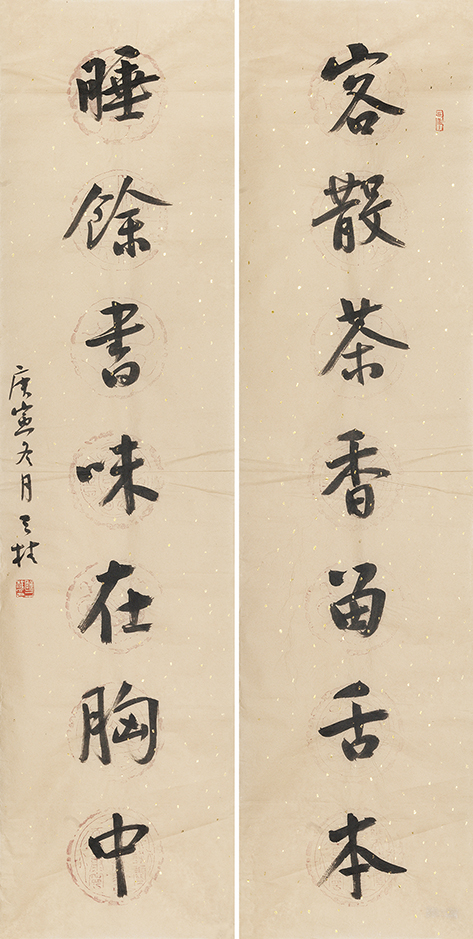 客散茶香留舌本
睡餘書味在胸中
庚寅冬月